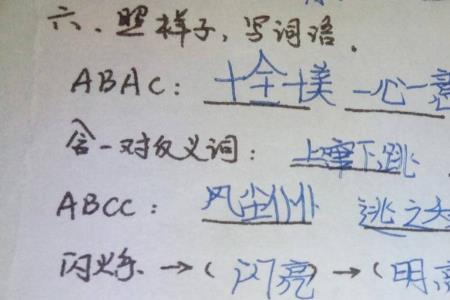 六、照样子,写词语.
ABAC: 十全十美 一心一意
含一对反义词: 上窜下跳
ABCC: 风尘仆仆 逃之夭
闪烁→(闪亮)→(明亮